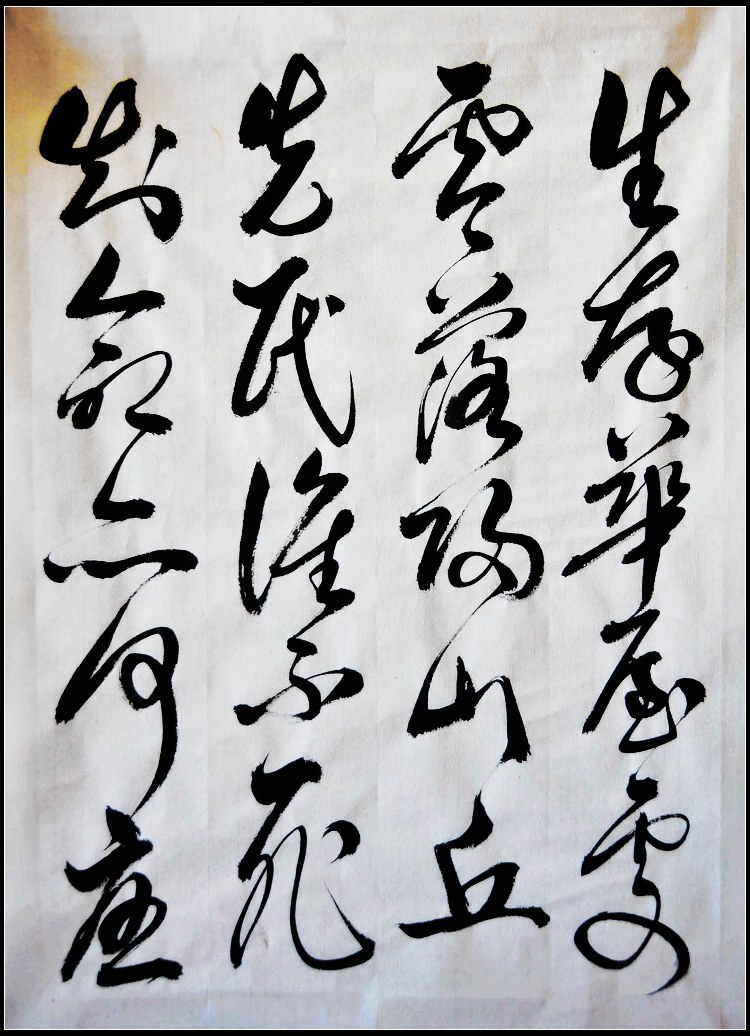 生存華屋處
零落歸山丘
先民誰不死
知命亦何憂